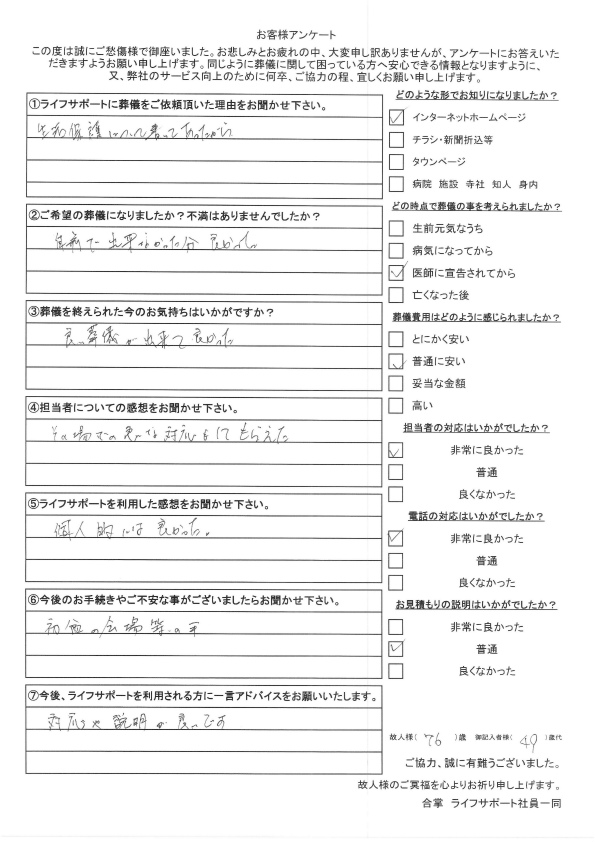 お客様アンケート
この度は誠にご愁傷様で御座いました。お悲しみとお疲れの中、大変申し訳ありませんが、アンケートにお答えいた
だきますようお願い申し上げます。同じように葬儀に関して困っている方へ安心できる情報となりますように、
又、弊社のサービス向上のために何卒、ご協力の程、宜しくお願い申し上げます。
①ライフサポートに葬儀をご依頼頂いた理由をお聞かせ下さい。
生活保護について書いてあったから
②ご希望の葬儀になりましたか？不満はありませんでしたか？
出来なかった分 良かった
③葬儀を終えられた今のお気持ちはいかがですか？
良い葬儀が出来て良かった
④担当者についての感想をお聞かせ下さい。
対応をしてもらえた
⑤ライフサポートを利用した感想をお聞かせ下さい。
個人的には良かった。
⑥今後のお手続きやご不安な事がございましたらお聞かせ下さい。
初盆の会場等の事
⑦今後、ライフサポートを利用される方に一言アドバイスをお願いいたします。
対応や説明が良いです
どのような形でお知りになりましたか？
インターネットホームページ
チラシ・新聞折込等
タウンページ
病院 施設 寺社 知人 身内
どの時点で葬儀の事を考えられましたか？
生前元気なうち
病気になってから
医師に宣告されてから
亡くなった後
葬儀費用はどのように感じられましたか？
とにかく安い
普通に安い
妥当な金額
高い
担当者の対応はいかがでしたか？
非常に良かった
普通
良くなかった
電話の対応はいかがでしたか？
非常に良かった
普通
良くなかった
お見積もりの説明はいかがでしたか？
非常に良かった
普通
良くなかった
故人様( 76 )歳 御記入者様( 49 )歳代
ご協力、誠に有難うございました。
故人様のご冥福を心よりお祈り申し上げます。
合掌 ライフサポート社員一同